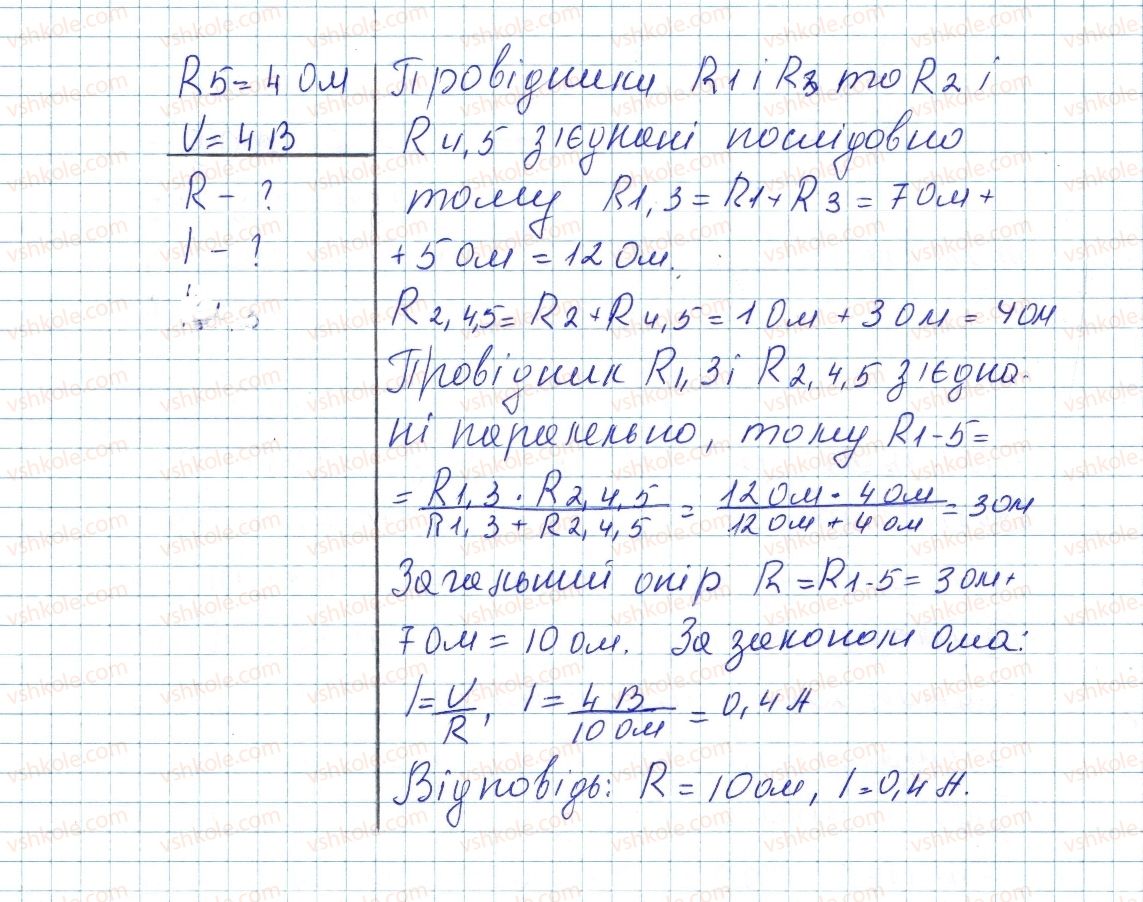 R5 = 4 Ом
U = 4 В
R - ?
I - ?
Провідники R1 і R3 то R2 і
R4,5 з'єднані послідовно
тому R1,3 = R1 + R3 = 7 Ом +
+ 5 Ом = 12 Ом.
R2,4,5 = R2 + R4,5 = 1 Ом + 3 Ом = 4 Ом
Провідник R1,3 і R2,4,5 з'єдна-
ні паралельно, тому R1-5 =
= R1,3 · R2,4,5 / R1,3 + R2,4,5 = 12 Ом · 4 Ом / 12 Ом + 4 Ом = 3 Ом
Загальний опір R = R1-5 = 3 Ом +
7 Ом = 10 Ом. За законом Ома:
I = U / R, I = 4 В / 10 Ом = 0,4 А
Відповідь: R = 10 Ом, I = 0,4 А.